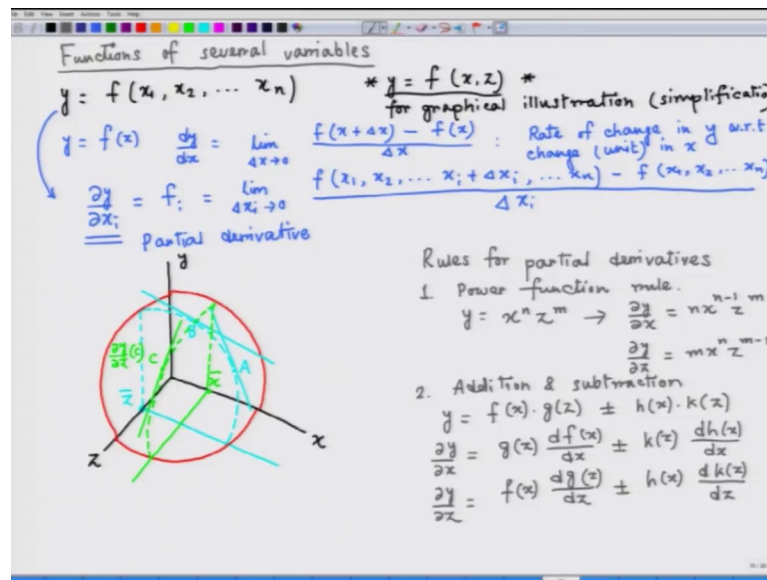 Functions of several variables
y = f(x₁, x₂, ... xₙ)
* y = f(x, z) *
for graphical illustration (simplificatio
y = f(x) dy/dx = lim Δx→0 f(x+Δx) - f(x) / Δx : Rate of change in y w.r.t
change (unit) in x
∂y/∂xᵢ = fᵢ = lim Δxᵢ→0 f(x₁, x₂, ... xᵢ+Δxᵢ, ... xₙ) - f(x₁, x₂, ... xₙ) / Δxᵢ
Partial derivative
y
B
∂y/∂z (C) C
A
x̄
z̄
x
z
Rules for partial derivatives
1. Power function rule.
y = xⁿ zᵐ → ∂y/∂x = nxⁿ⁻¹ zᵐ
∂y/∂z = mxⁿ zᵐ⁻
2. Addition & subtraction
y = f(x)· g(z) ± h(x)· k(z)
∂y/∂x = g(z) df(x)/dx ± k(z) dh(x)/dx
∂y/∂z = f(x) dg(z)/dz ± h(x) dk(z)/dz